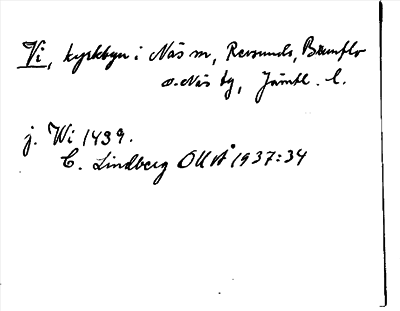 Vi, kyrkbyn i Näs sn, Revsunds, Brunflo
o. Näs tg, Jämtl. l.
j. Wi 1439.
C. Lindberg OUÅ 1937:34